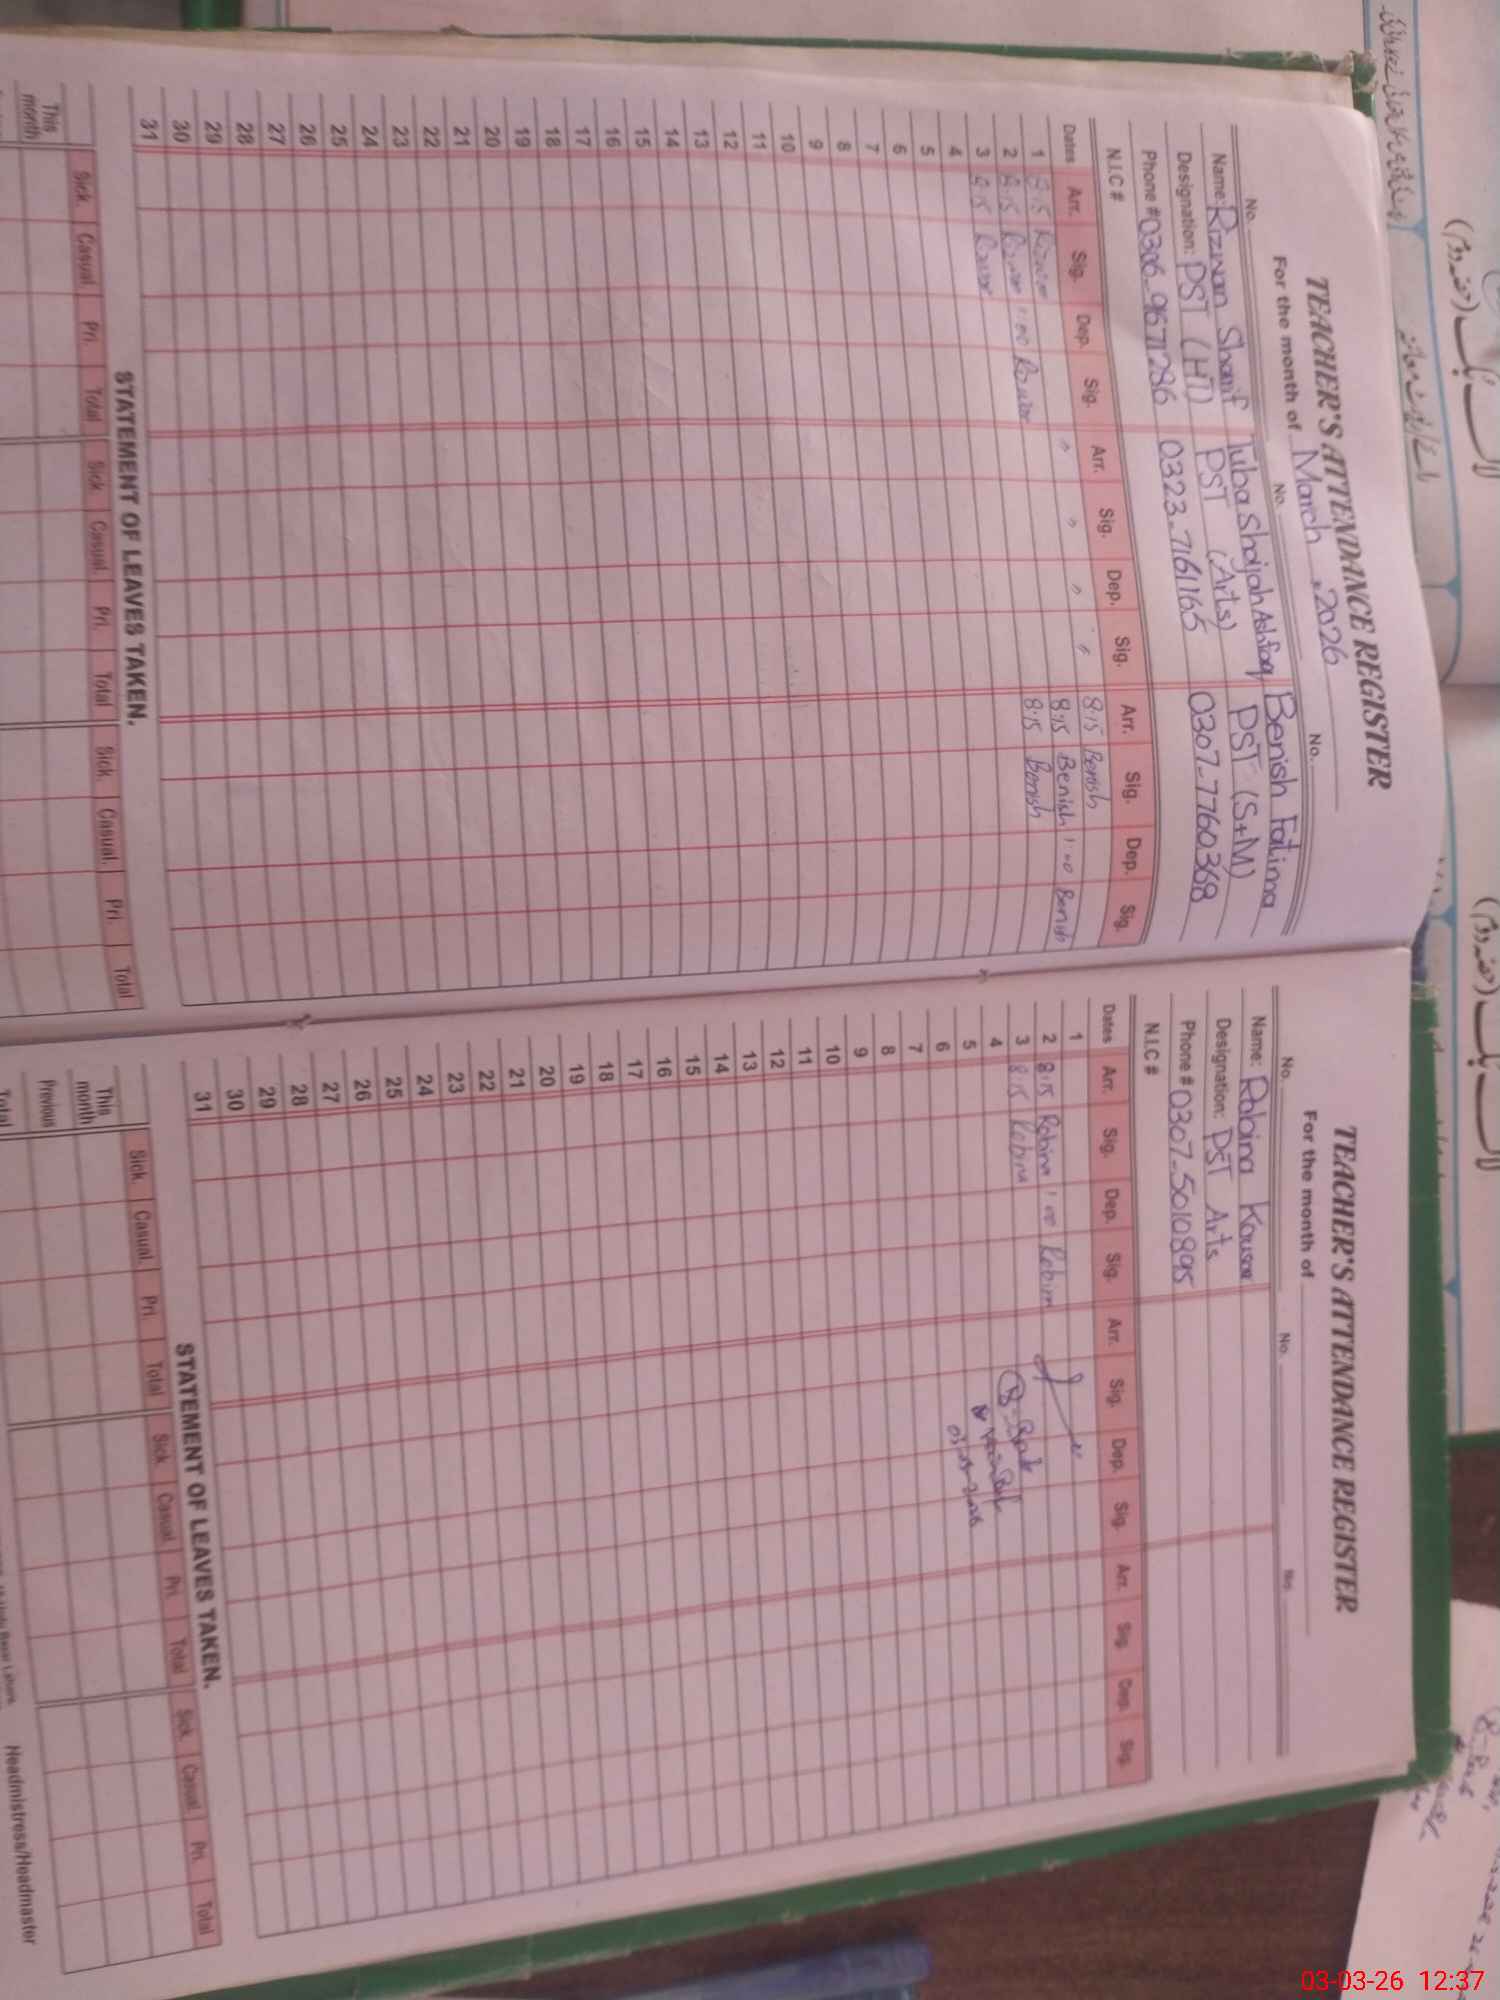 TEACHER'S ATTENDANCE REGISTER
For the month of March, 2026
No. No. No.
Name: Rizwan Sharif Tuba Shaijah Ashfaq Benish Fatima
Designation: PST (HT) PST (Arts) PST (S+M)
Phone # 0306-9671286 0323-7161165 0307-7760368
N.I.C #
Dates Arr. Sig. Dep. Sig. Arr. Sig. Dep. Sig. Arr. Sig. Dep. Sig.
1 8:15 8:15 Benish
2 8:15 1:00 8:15 Benish 1:00 Benish
3 8:15 8:15 Benish
4
5
6
7
8
9
10
11
12
13
14
15
16
17
18
19
20
21
22
23
24
25
26
27
28
29
30
31
STATEMENT OF LEAVES TAKEN.
Sick Casual. Pri. Total Sick Casual. Pri. Total Sick. Casual. Pri. Total
This month
TEACHER'S ATTENDANCE REGISTER
For the month of
No. No. No.
Name: Robina Kousar
Designation: PST Arts
Phone # 0307-5010895
N.I.C #
Dates Arr. Sig. Dep. Sig. Arr. Sig. Dep. Sig. Arr. Sig. Dep. Sig.
1
2 8:15 Robina 1:00 Robina
3 8:15 Robina
4
5
6
7
8
9
10
11
12
13
14
15
16
17
18
19
20
21
22
23
24
25
26
27
28
29
30
31
STATEMENT OF LEAVES TAKEN.
Sick. Casual. Pri. Total Sick Casual Pri. Total Sick. Casual Pri. Total
This month
Previous
Total
Headmistress/Headmaster
03-03-26 12:37